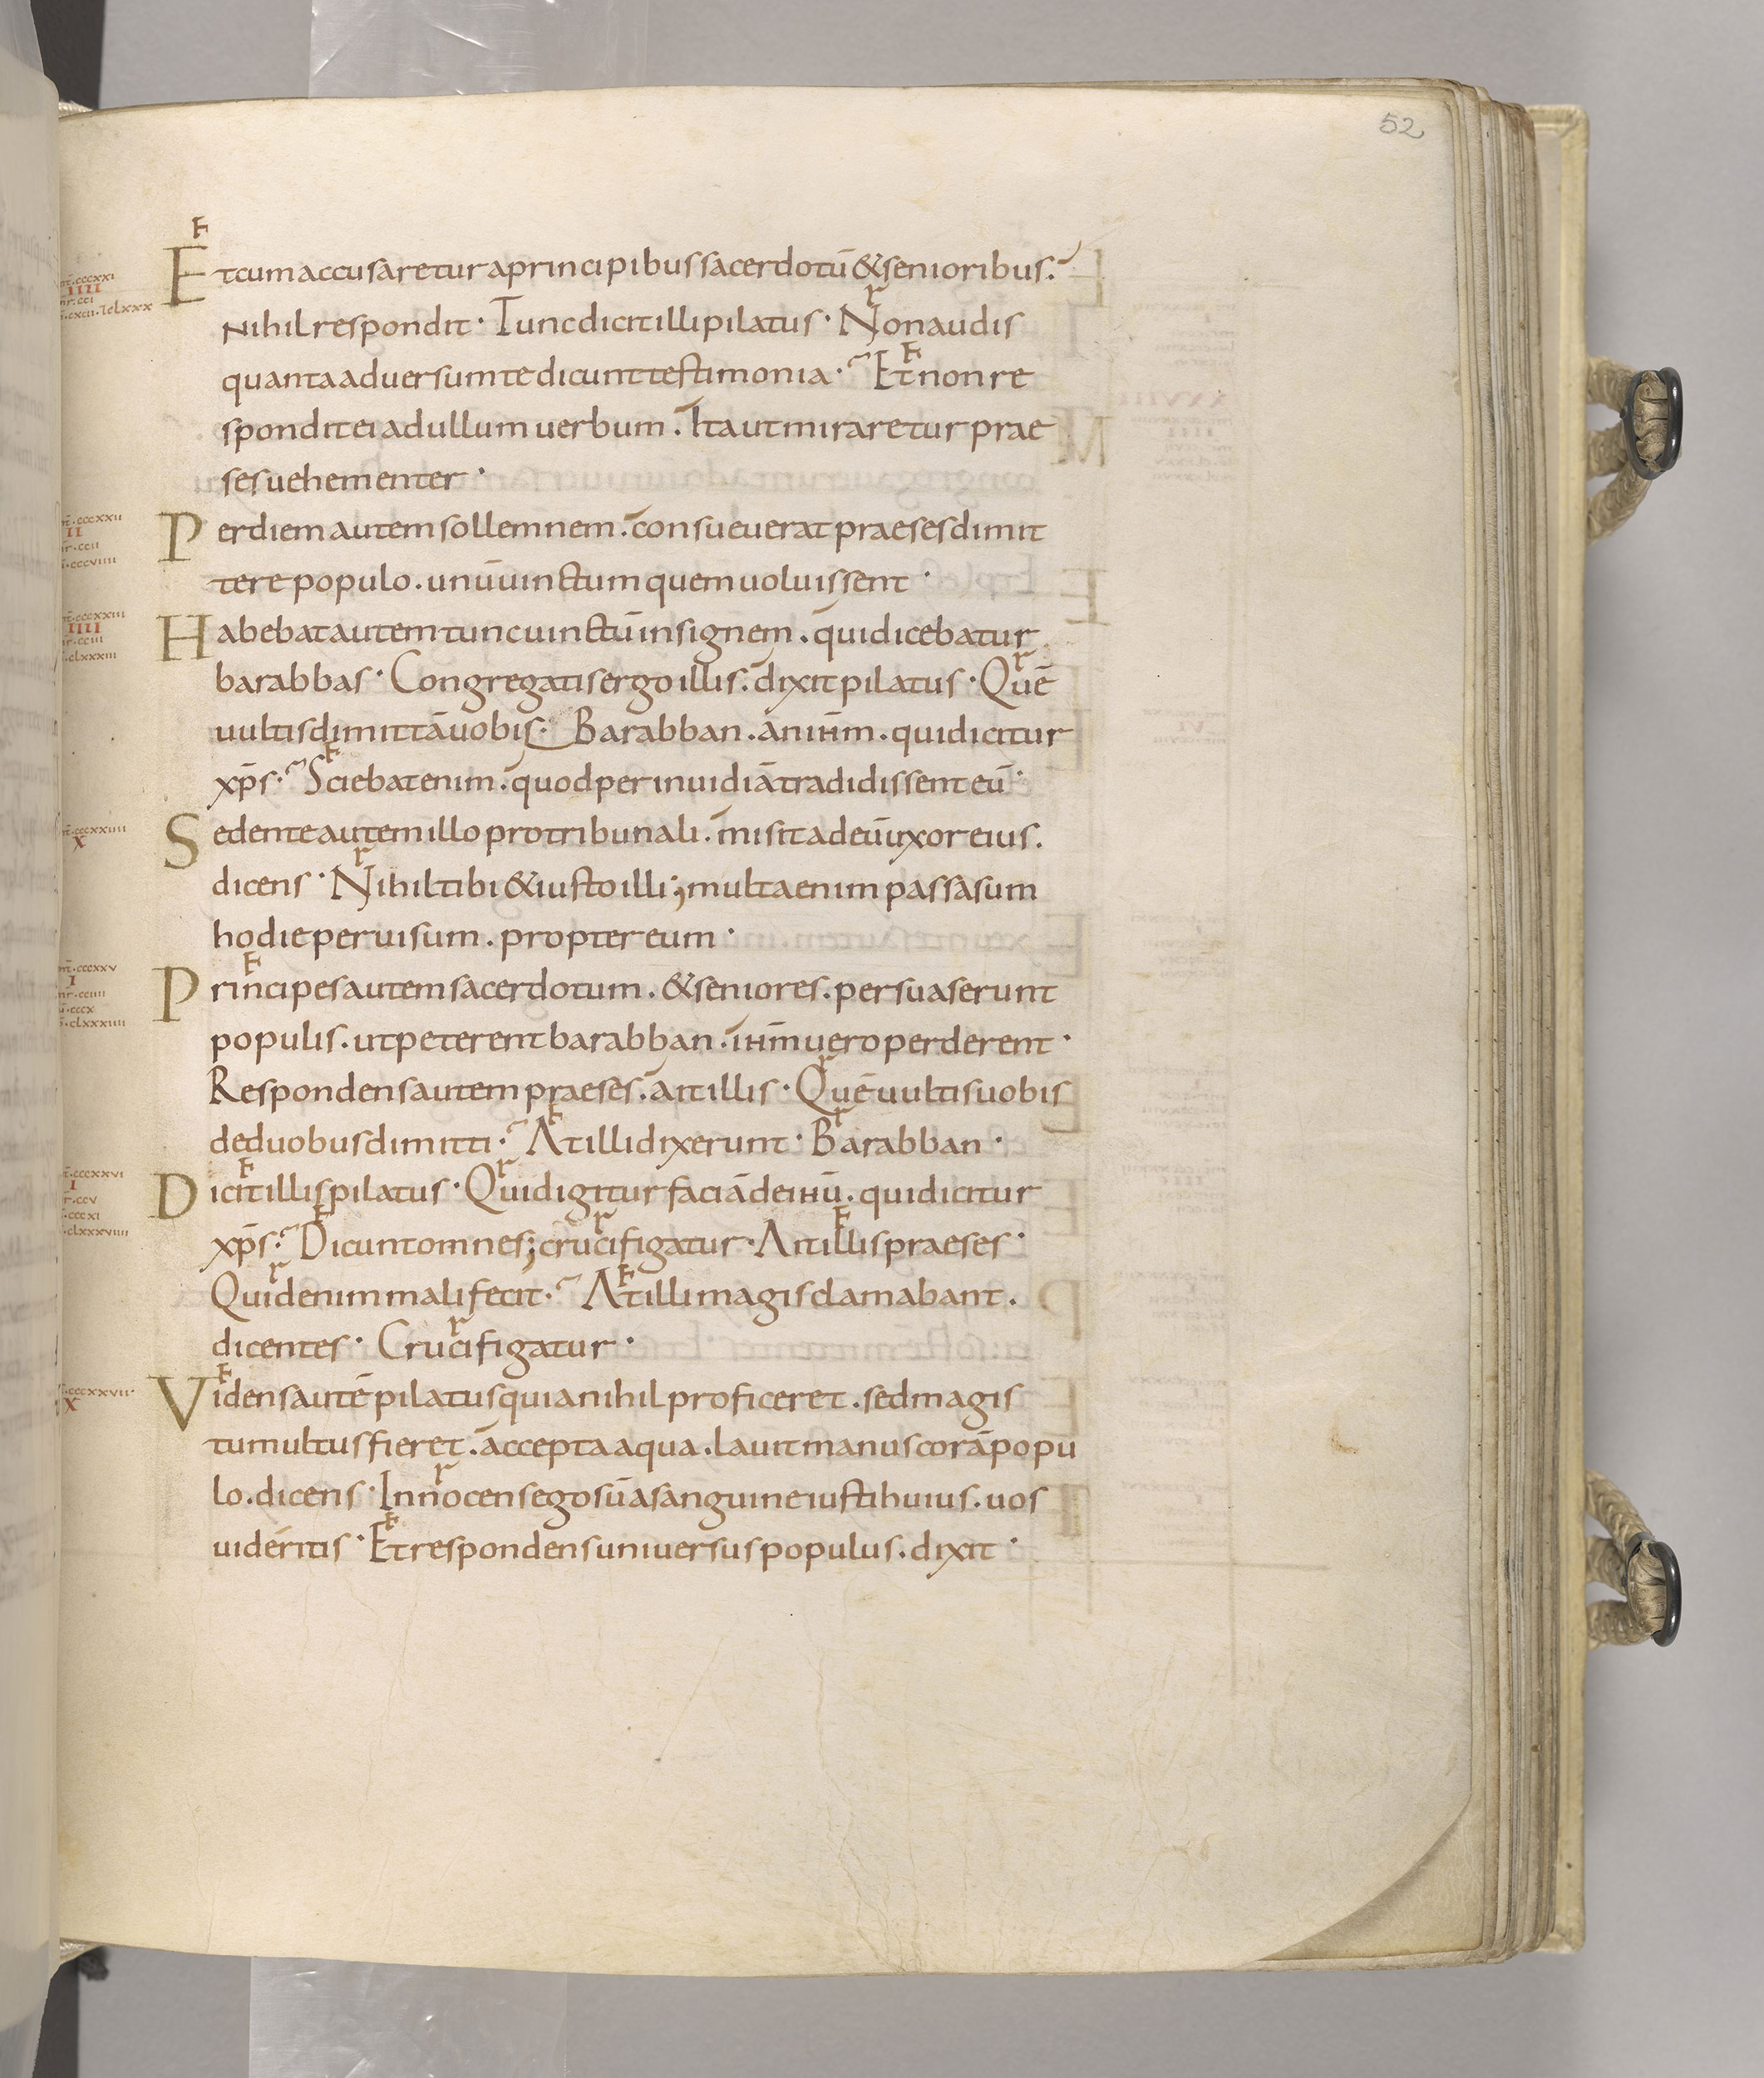 52
Et cum accusaretur a principibus sacerdotū & senioribus.
Nihil respondit· Tunc dicit illi pilatus· Non audis
quanta adversum te dicunt testimonia· Et non re
spondit ei ad ullum verbum. Ita ut miraretur prae
ses vehementer·
mt̄·cccxxii
II
mr·ccii
cccviiii
Per diem autem sollemnem. consueverat praeses dimit
tere populo. unū vinctum quem voluissent·
mt̄·cccxxiii
IIII
mr·cciii
clxxxiii
Habebat autem tunc vinctū insignem. qui dicebatur
barabbas· Congregatis ergo illis. dixit pilatus· Quē
vultis dimittā vobis· Barabban. an ihm̄. qui dicitur
xp̄s· Sciebat enim. quod per invidiā tradidissent eū·
mt̄·cccxxiiii
X
Sedente autem illo pro tribunali. misit ad eū uxor eius.
dicens· Nihil tibi & iusto illi; multa enim passa sum
hodie per visum. propter eum·
mt̄·cccxxv
I
mr·cciiii
cccx
clxxxiiii
Principes autem sacerdotum. & seniores. persuaserunt
populis. ut peterent barabban. ihm̄ vero perderent·
Respondens autem praeses. ait illis· Quē vultis vobis
de duobus dimitti· At illi dixerunt· Barabban·
mt̄·cccxxvi
I
mr·ccv
cccxi
clxxxviiii
Dicit illis pilatus· Quid igitur faciā de ihū. qui dicitur
xp̄s· Dicunt omnes; crucifigatur· Ait illis praeses·
Quid enim mali fecit· At illi magis clamabant.
dicentes· Crucifigatur·
cccxxvii
X
Videns autē pilatus quia nihil proficeret. sed magis
tumultus fieret. accepta aqua. lavit manus corā popu
lo. dicens· Innocens ego sū a sanguine iusti huius. vos
videritis· Et respondens universus populus. dixit·